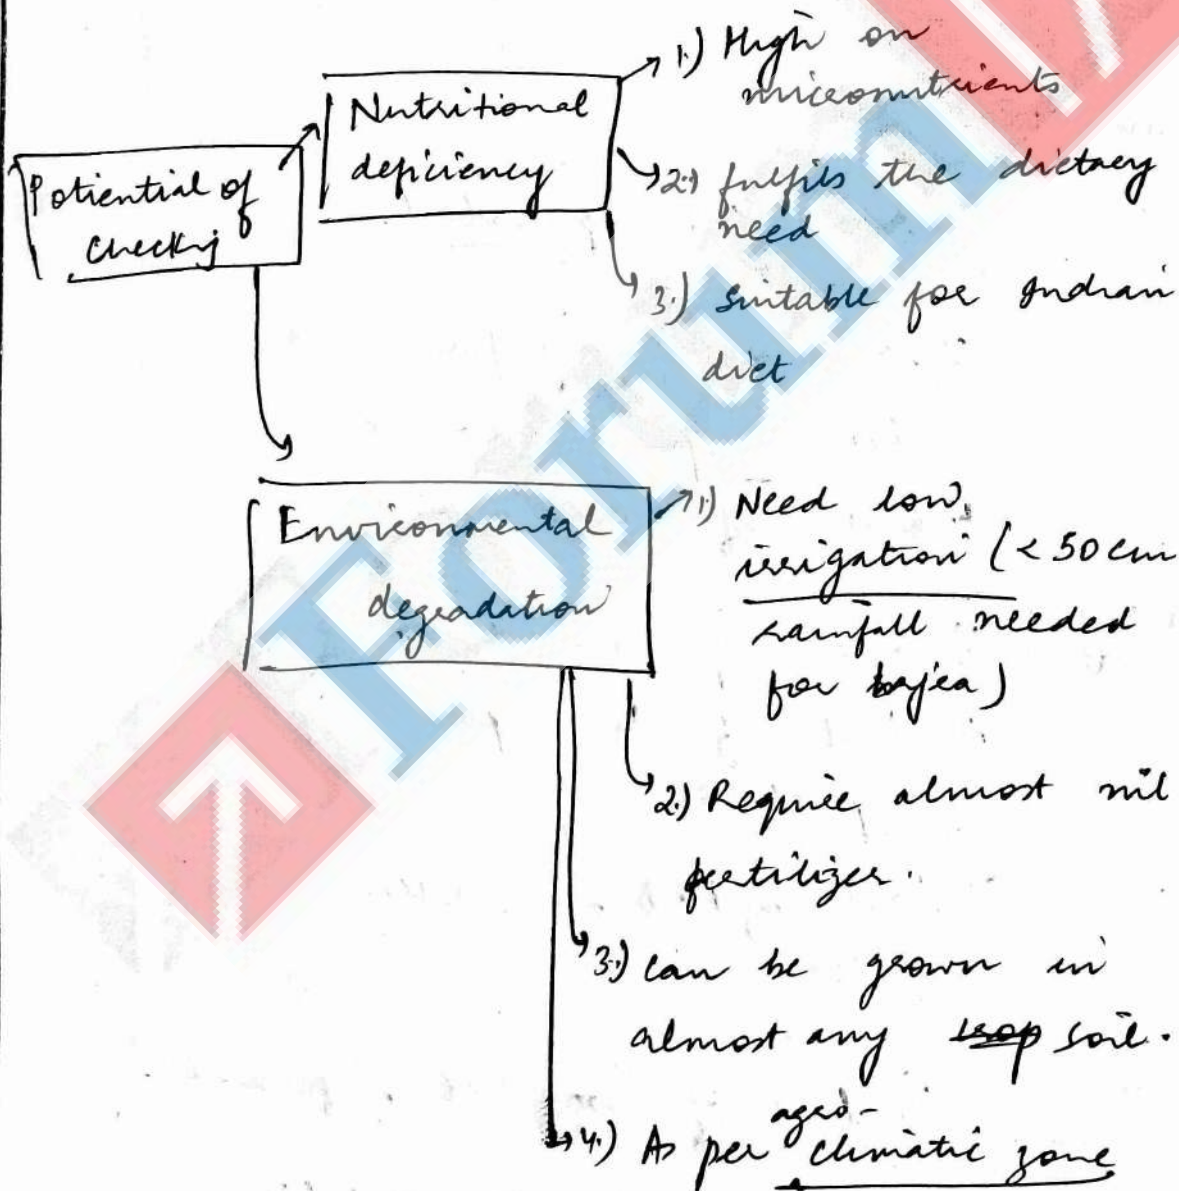 Potiential of
checking
Nutritional
deficiency
1.) High on
micronutrients
2.) fulfils the dietary
need
3.) suitable for Indian
diet
Environmental
degradation
1.) Need low
irrigation (< 50 cm
rainfall needed
for bajra)
2.) Require almost nil
fertilizer.
3.) can be grown in
almost any crop soil.
4.) As per agro-
climatic zone
Forum